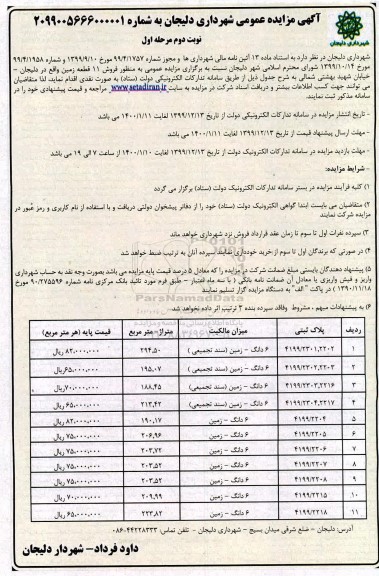 آگهی مزایده عمومی شهرداری دلیجان به شماره ۲۰۹۹۰۰۵۶۶۶۰۰۰۰۰۱
نوبت دوم مرحله اول
شهرداری دلیجان
شهرداری دلیجان در نظر دارد به استناد ماده ۱۳ آئین نامه مالی شهرداری ها و مجوز شماره ۹۹/۴/۱۷۵۷ مورخ ۱۳۹۹/۹/۱۰ و شماره ۹۹/۴/۱۹۵۸
مورخ ۱۳۹۹/۱۰/۱۴ شورای محترم اسلامی شهر دلیجان نسبت به برگزاری مزایده عمومی به منظور فروش ۱۱ قطعه زمین واقع در دلیجان -
خیابان شهید بهشتی شمالی به شرح جدول ذیل از طریق سامانه تدارکات الکترونیکی دولت (ستاد) به صورت نقدی اقدام نماید. لذا متقاضیان
می توانند جهت کسب اطلاعات بیشتر و دریافت اسناد شرکت در مزایده به سایت www.setadiran.ir مراجعه و قیمت پیشنهادی خود را در
سامانه مذکور ثبت نمایند.
- تاریخ انتشار مزایده در سامانه تدارکات الکترونیک دولت از تاریخ ۱۳۹۹/۱۲/۱۳ لغایت ۱۴۰۰/۱/۱۱ می باشد
- مهلت ارسال پیشنهاد قیمت از تاریخ ۱۳۹۹/۱۲/۱۳ لغایت ۱۴۰۰/۱/۱۱ می باشد
- مهلت بازدید مزایده در سامانه تدارکات الکترونیک دولت از تاریخ ۱۳۹۹/۱۲/۱۳ لغایت ۱۴۰۰/۱/۱۰ از ساعت ۷ الی ۱۹ می باشد
- شرایط مزایده:
۱) کلیه فرآیند مزایده در بستر سامانه تدارکات الکترونیک دولت (ستاد) برگزار می گردد
۲) متقاضیان می بایست ابتدا گواهی الکترونیک دولت (ستاد) خود را از دفاتر پیشخوان دولتی دریافت و با استفاده از نام کاربری و رمز عبور در
مزایده شرکت نمایند
۳) سپرده نفرات اول تا سوم تا زمان عقد قرارداد فروش نزد شهرداری خواهد ماند
۴) در صورتی که برندگان اول تا سوم از خرید خودداری نمایند سپرده آنان به ترتیب ضبط خواهد شد
۵) پیشنهاد دهندگان بایستی مبلغ ضمانت شرکت در مزایده را که معادل ۵ درصد قیمت پایه مزایده می باشد بصورت وجه نقد به حساب شهرداری
واریز و فیش واریزی یا معادل آن ضمانت نامه بانکی ( با سه ماه اعتبار - طبق فرم مورد تائید بانک مرکزی نامه شماره ۹۰/۲۷۵۵۹۶ مورخ
۱۳۹۰/۱۱/۱۸ ) در پاکت "الف" به دستگاه مزایده گزار تسلیم نمایند
۶) به پیشنهادات مبهم ، مشروط وفاقد سپرده بنده ۳ ترتیب اثر داده نخواهد شد
ParsNamadData
ردیف پلاک ثبتی میزان مالکیت متراژ- متر مربع قیمت پایه (هر متر مربع)
۱ ۴۱۹۹/۲۳۰۱,۲۲۰۲ ۶ دانگ - زمین (سند تجمیعی) ۲۹۴,۵۰ ۸۲,۰۰۰,۰۰۰ ریال
۲ ۴۱۹۹/۲۳۰۲,۲۲۰۳ ۶ دانگ - زمین (سند تجمیعی) ۱۹۵,۰۷ ۶۵,۰۰۰,۰۰۰ ریال
۳ ۴۱۹۹/۲۳۰۳,۲۲۱۶ ۶ دانگ - زمین (سند تجمیعی) ۱۸۸,۴۵ ۷۰,۰۰۰,۰۰۰ ریال
۴ ۴۱۹۹/۲۳۰۴,۲۲۱۷ ۶ دانگ - زمین (سند تجمیعی) ۲۱۳,۴۲ ۶۵,۰۰۰,۰۰۰ ریال
۵ ۴۱۹۹/۲۲۰۴ ۶ دانگ - زمین ۱۹۰,۱۷ ۸۲,۰۰۰,۰۰۰ ریال
۶ ۴۱۹۹/۲۲۰۵ ۶ دانگ - زمین ۲۰۶,۹۶ ۷۵,۰۰۰,۰۰۰ ریال
۷ ۴۱۹۹/۲۲۰۶ ۶ دانگ - زمین ۲۰۳,۷۲ ۷۵,۰۰۰,۰۰۰ ریال
۸ ۴۱۹۹/۲۲۰۷ ۶ دانگ - زمین ۲۰۳,۵۲ ۷۵,۰۰۰,۰۰۰ ریال
۹ ۴۱۹۹/۲۲۰۸ ۶ دانگ - زمین ۲۰۳,۵۲ ۷۵,۰۰۰,۰۰۰ ریال
۱۰ ۴۱۹۹/۲۲۱۵ ۶ دانگ - زمین ۲۰۹,۹۹ ۷۰,۰۰۰,۰۰۰ ریال
۱۱ ۴۱۹۹/۲۲۱۸ ۶ دانگ - زمین ۲۲۳,۸۲ ۶۵,۰۰۰,۰۰۰ ریال
آدرس: دلیجان - ضلع شرقی میدان بسیج - شهرداری دلیجان - تلفن تماس: ۴۴۲۲۸۳۳۳-۰۸۶
داود فرداد- شهردار دلیجان